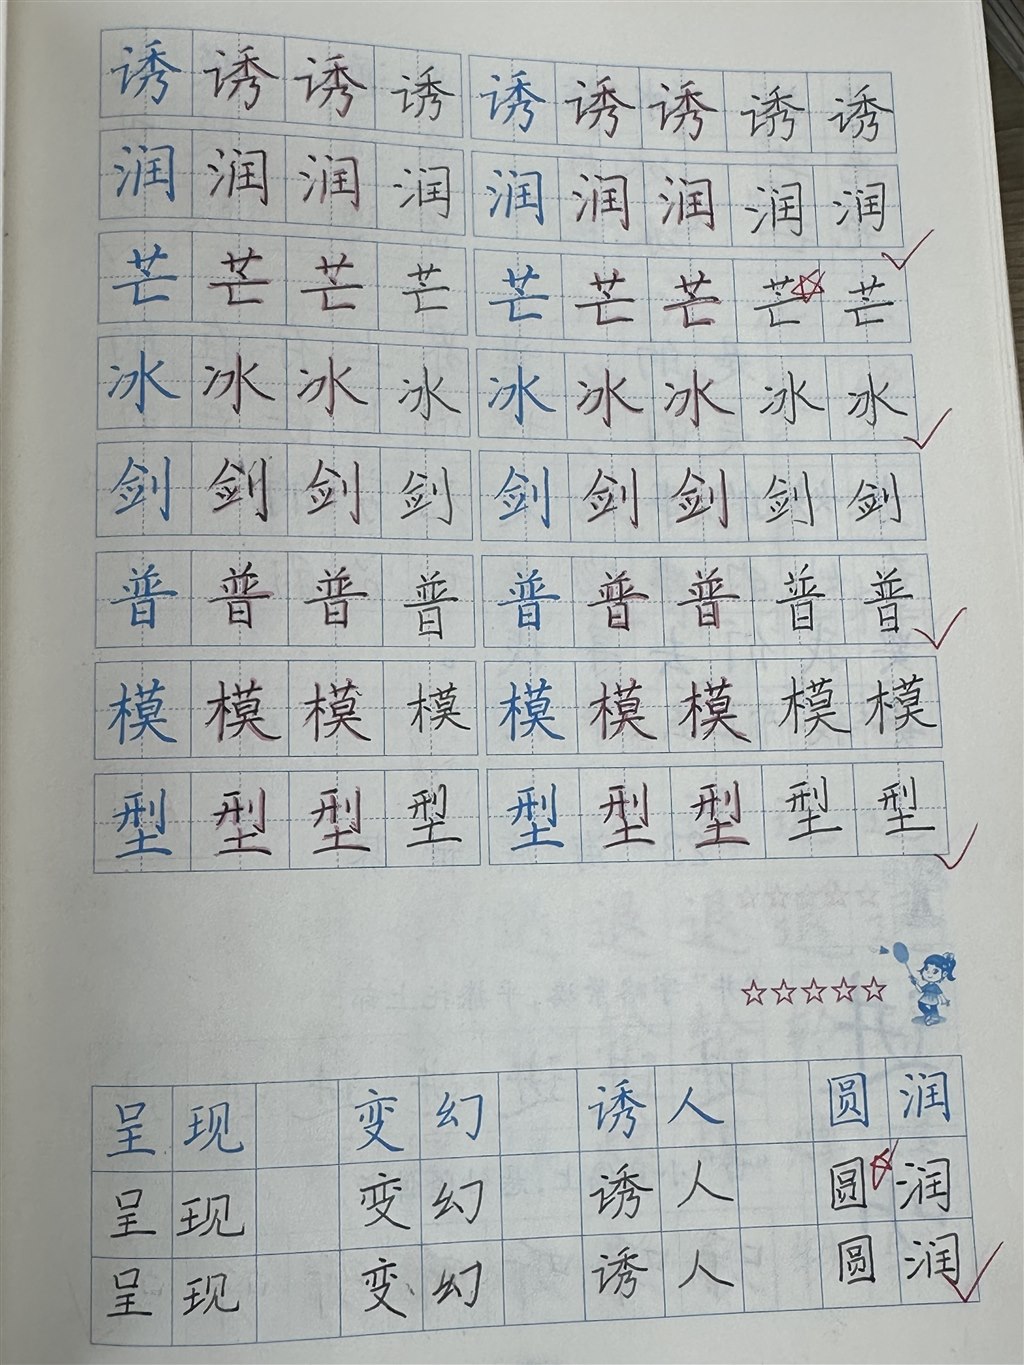 诱诱诱诱诱诱诱诱诱
润润润润润润润润润
芒芒芒芒芒芒芒芒芒
冰冰冰冰冰冰冰冰冰
剑剑剑剑剑剑剑剑剑
普普普普普普普普普
模模模模模模模模模
型型型型型型型型型
☆☆☆☆☆
呈现 变幻 诱人 圆润
呈现 变幻 诱人 圆润
呈现 变幻 诱人 圆润